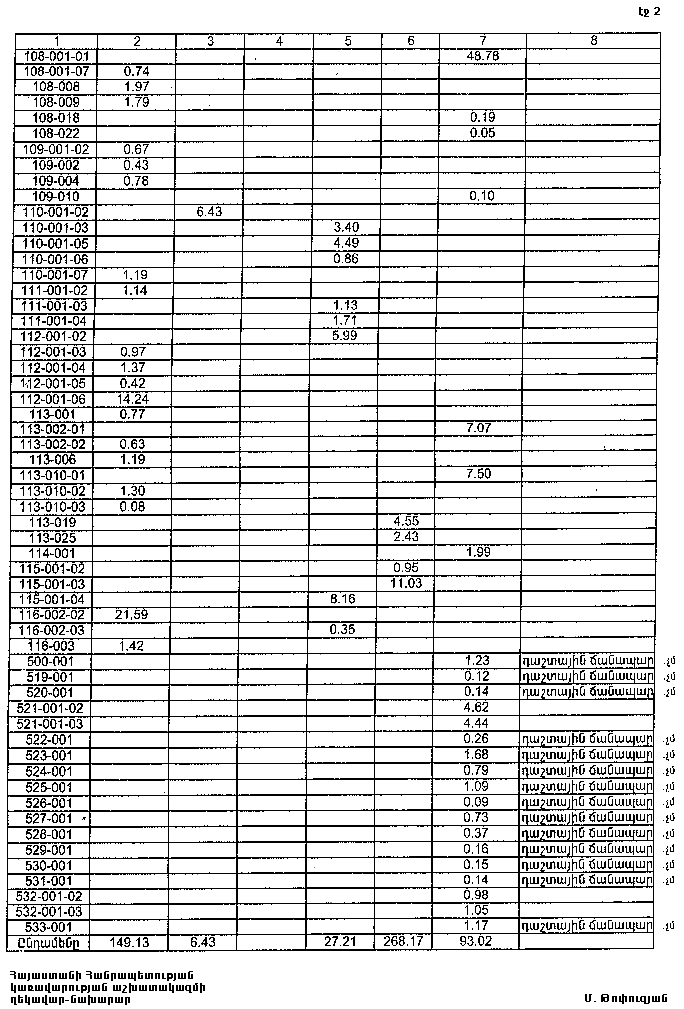 էջ 2
1 2 3 4 5 6 7 8
108-001-01 48.78
108-001-07 0.74
108-008 1.97
108-009 1.79
108-018 0.19
108-022 0.05
109-001-02 0.67
109-002 0.43
109-004 0.78
109-010 0.10
110-001-02 6.43
110-001-03 3.40
110-001-05 4.49
110-001-06 0.86
110-001-07 1.19
111-001-02 1.14
111-001-03 1.13
111-001-04 1.71
112-001-02 5.99
112-001-03 0.97
112-001-04 1.37
112-001-05 0.42
112-001-06 14.24
113-001 0.77
113-002-01 7.07
113-002-02 0.63
113-006 1.19
113-010-01 7.50
113-010-02 1.30
113-010-03 0.08
113-019 4.55
113-025 2.43
114-001 1.99
115-001-02 0.95
115-001-03 11.03
115-001-04 8.16
116-002-02 21,59
116-002-03 0.35
116-003 1.42
500-001 1.23 դաշտային ճանապար .չմ
519-001 0.12 դաշտային ճանապար .չմ
520-001 0.14 դաշտային ճանապար .չմ
521-001-02 4.62
521-001-03 4.44
522-001 0.26 դաշտային ճանապար .չմ
523-001 1.68 դաշտային ճանապար .չմ
524-001 0.79 դաշտային ճանապար .չմ
525-001 1.09 դաշտային ճանապար .չմ
526-001 0.09 դաշտային ճանապար .չմ
527-001 0.73 դաշտային ճանապար .չմ
528-001 0.37 դաշտային ճանապար .չմ
529-001 0.16 դաշտային ճանապար .չմ
530-001 0.15 դաշտային ճանապար .չմ
531-001 0.14 դաշտային ճանապար .չմ
532-001-02 0.98
532-001-03 1.05
533-001 1.17 դաշտային ճանապար .չմ
Ընդամենը 149.13 6.43 27.21 268.17 93.02
Հայաստանի Հանրապետության
կառավարության աշխատակազմի
ղեկավար-նախարար Մ. Թոփուզյան